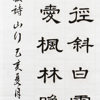 徑斜白雲
愛楓林晚
詩山行乙亥夏月